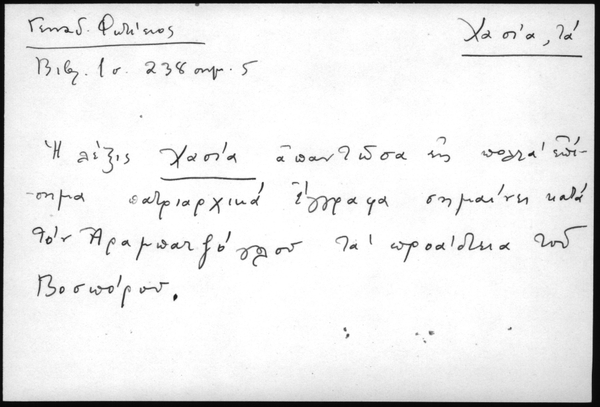 Γενναδ. Φωτίειος
Χασία, τά
Βιβ. 1 σ. 238 σημ. 5
Ἡ λέξις Χασία ἀπαντῶσα εἰς πολλά ἐπί-
σημα πατριαρχικά ἔγγραφα σημαίνει κατά
τόν Ἀραμπατζόγλου τά προάστεια τοῦ
Βοσπόρου.